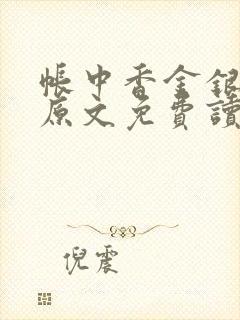 帳中香金銀
原文免費讀
倪震